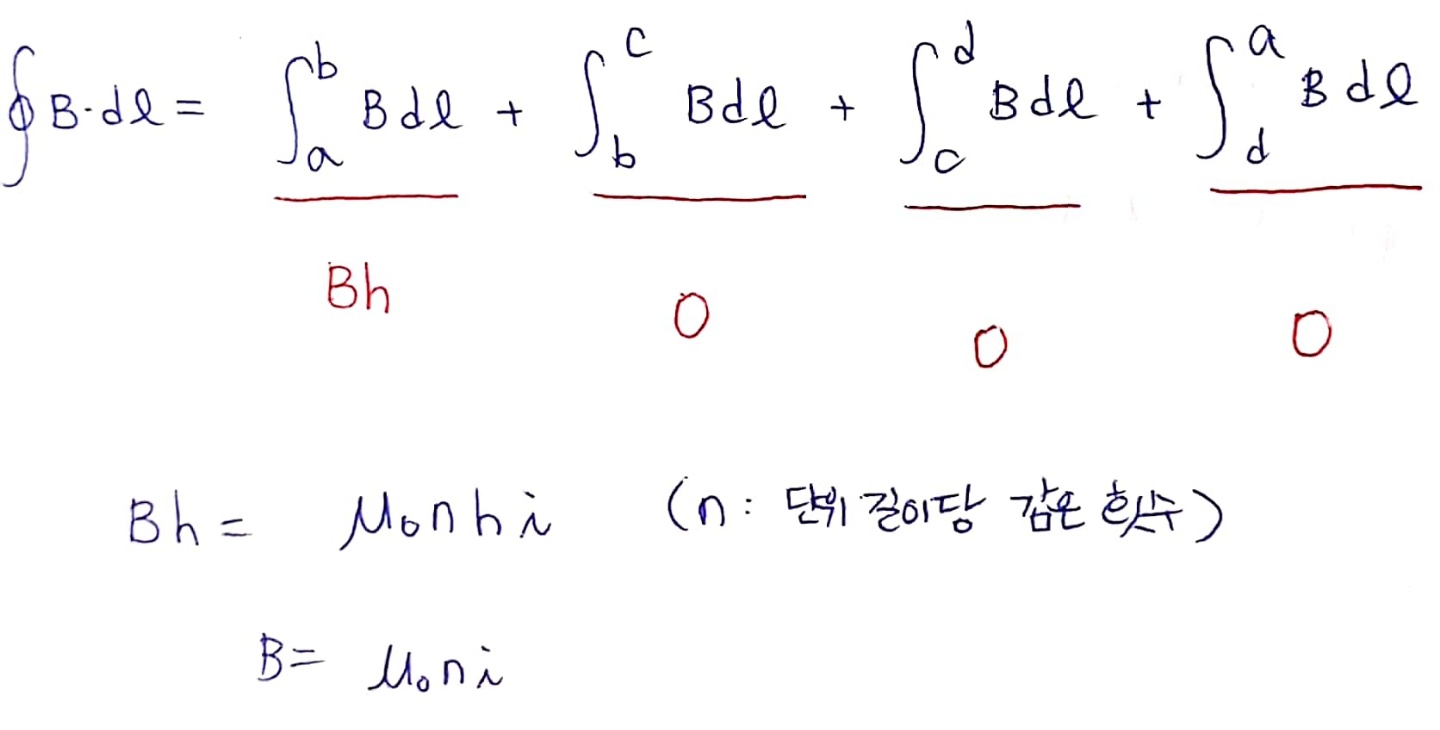 ∮B·dl = ∫_a^b Bdl + ∫_b^c Bdl + ∫_c^d Bdl + ∫_d^a Bdl
Bh 0 0 0
Bh = μ₀nhi (n : 단위 길이당 감은 횟수)
B = μ₀ni